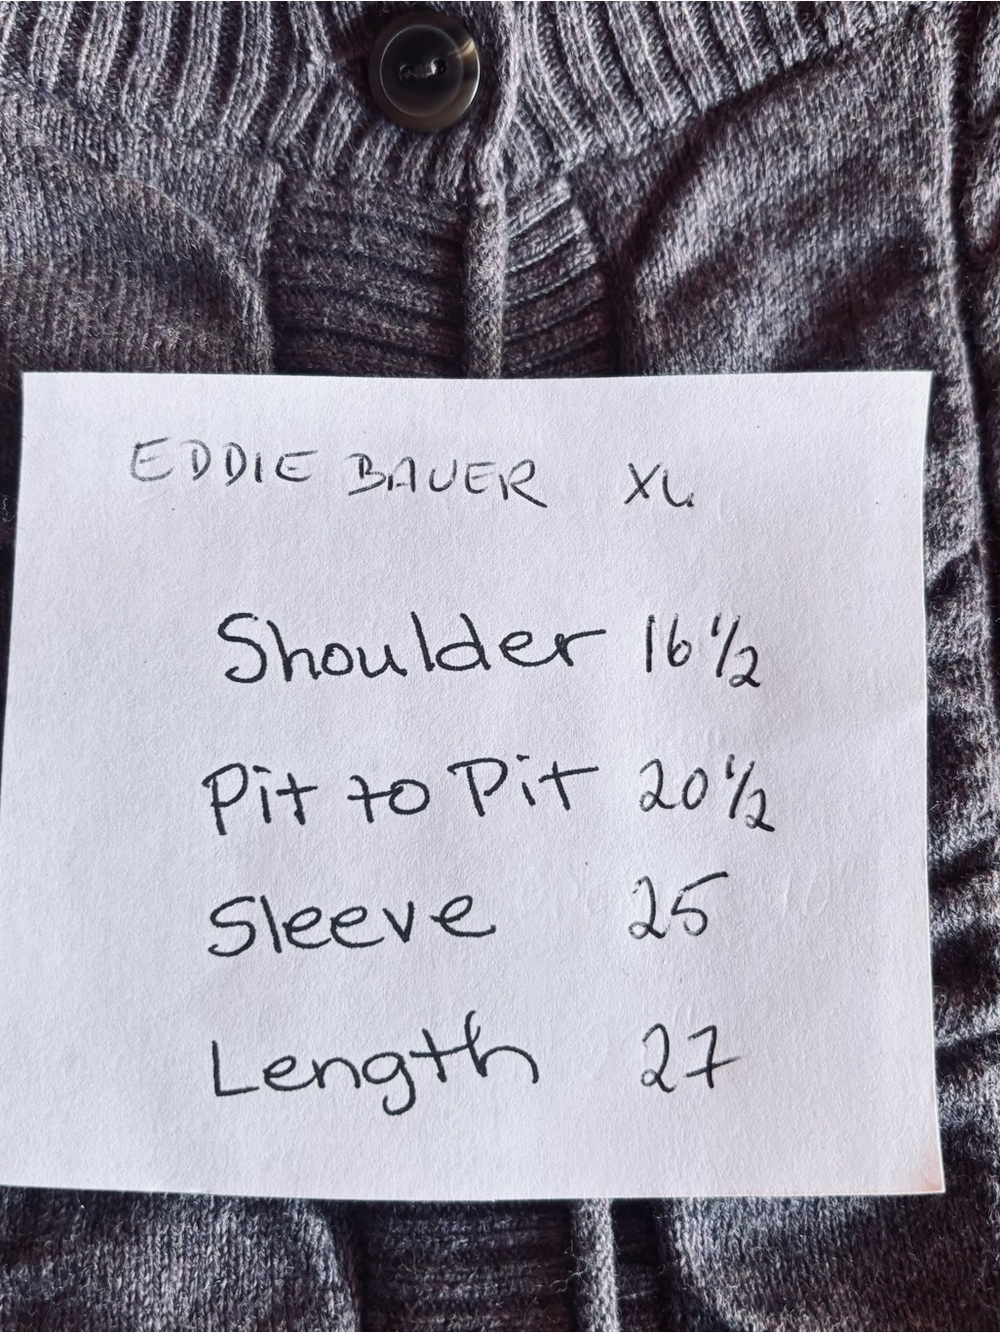 EDDIE BAUER XL
Shoulder 16 1/2
Pit to Pit 20 1/2
Sleeve 25
Length 27